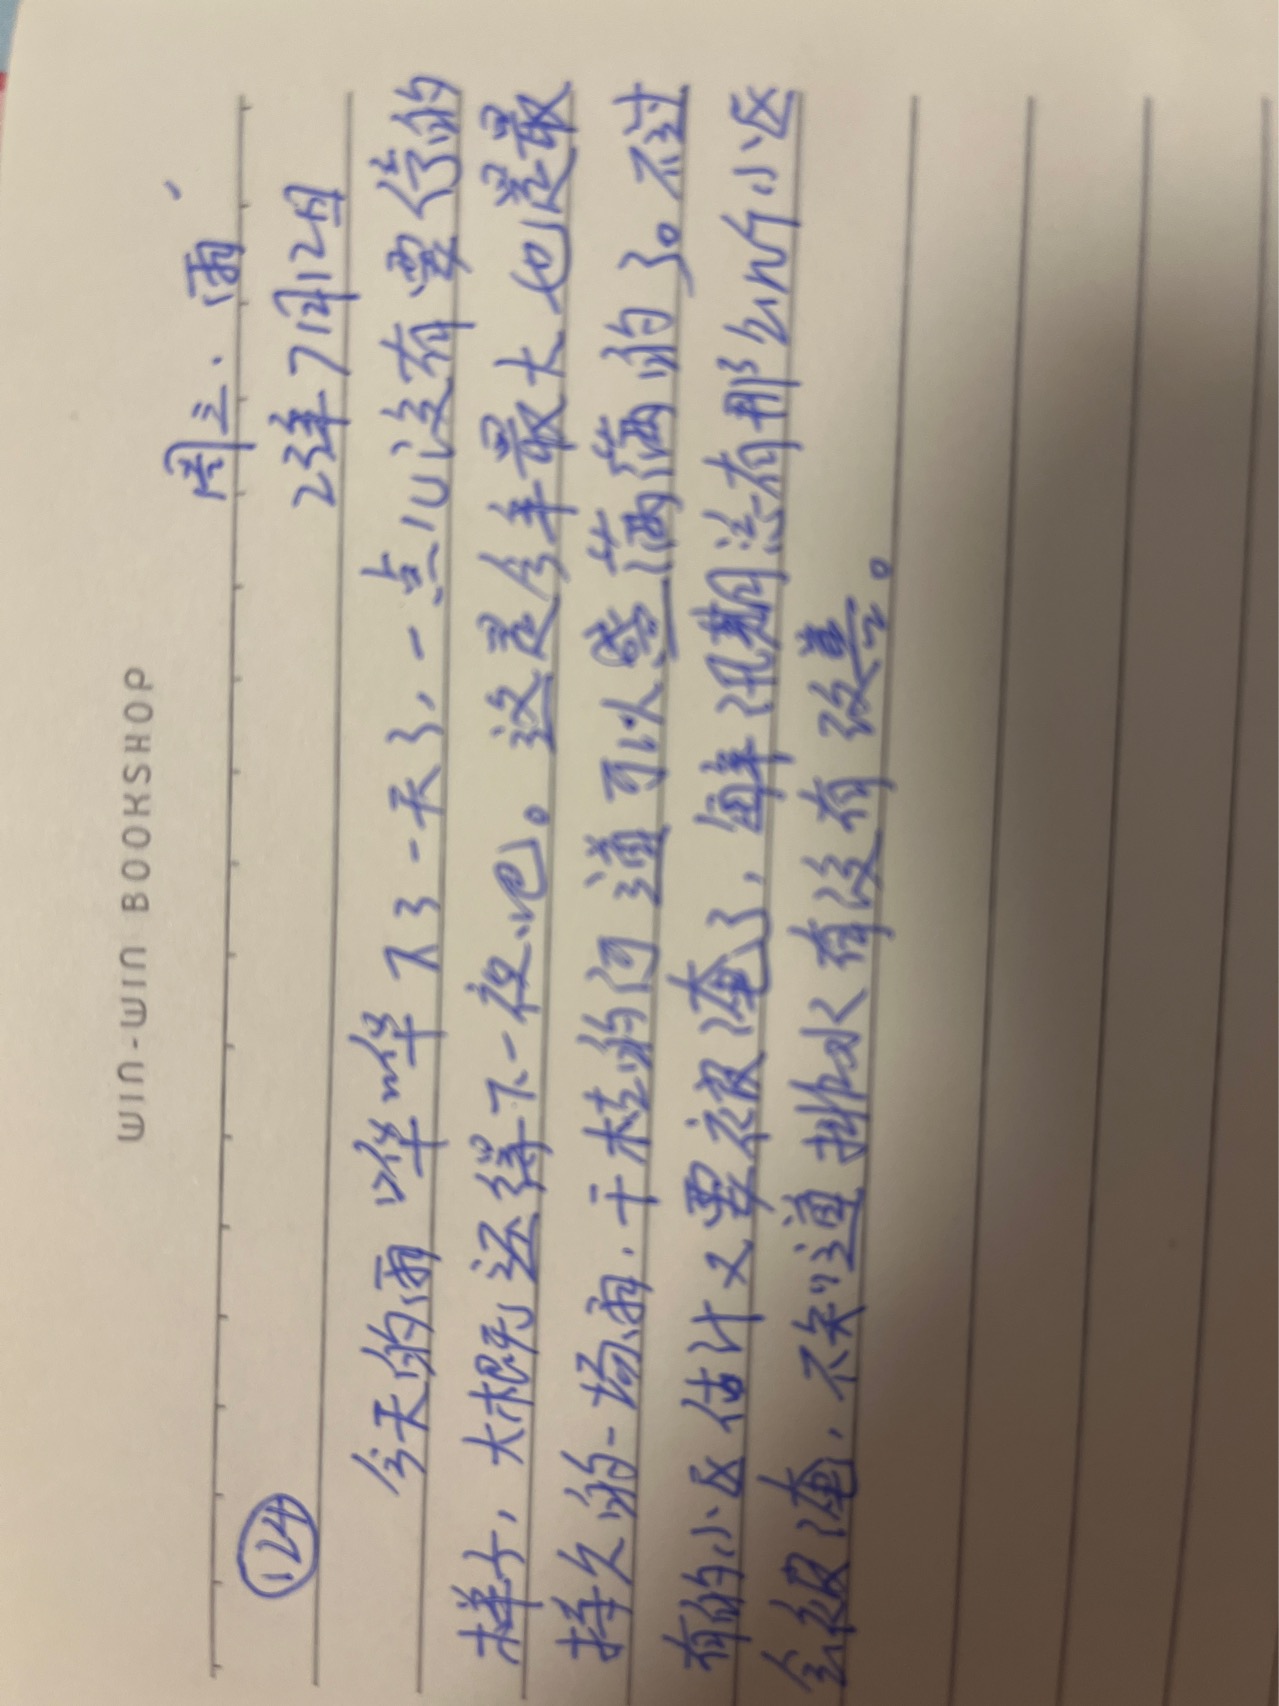 WIN-WIN BOOKSHOP
周三.雨
124 23年7月12日
今天的雨哗哗下了一天了,一点儿没有要停的
样子,大概还得下一夜吧。这是今年最大也是最
持久的一场雨.干枯的河道可以蓄满满的了。不过
有的小区估计又要被淹了,每年汛期总有那么几个小区
会被淹.不知道排水有没有改善。